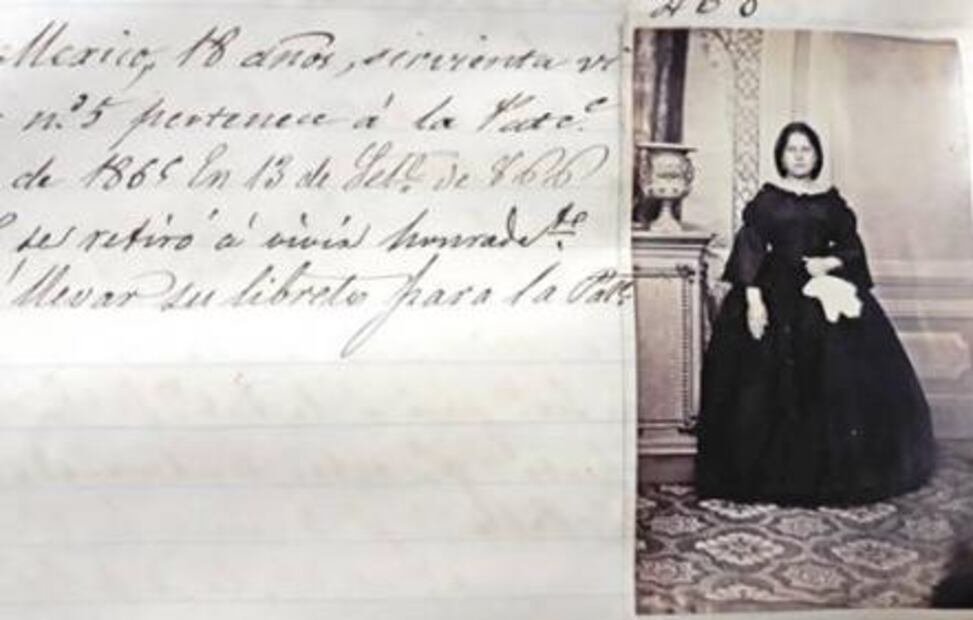 268
Mexico, 18 años, sirvienta vi
nº5 pertenece á la Patc.
de 1865 En 13 de Setᵉ de 866
se retiró á vivir honradᵗᵉ
llevar su libreto para la Patᵉ